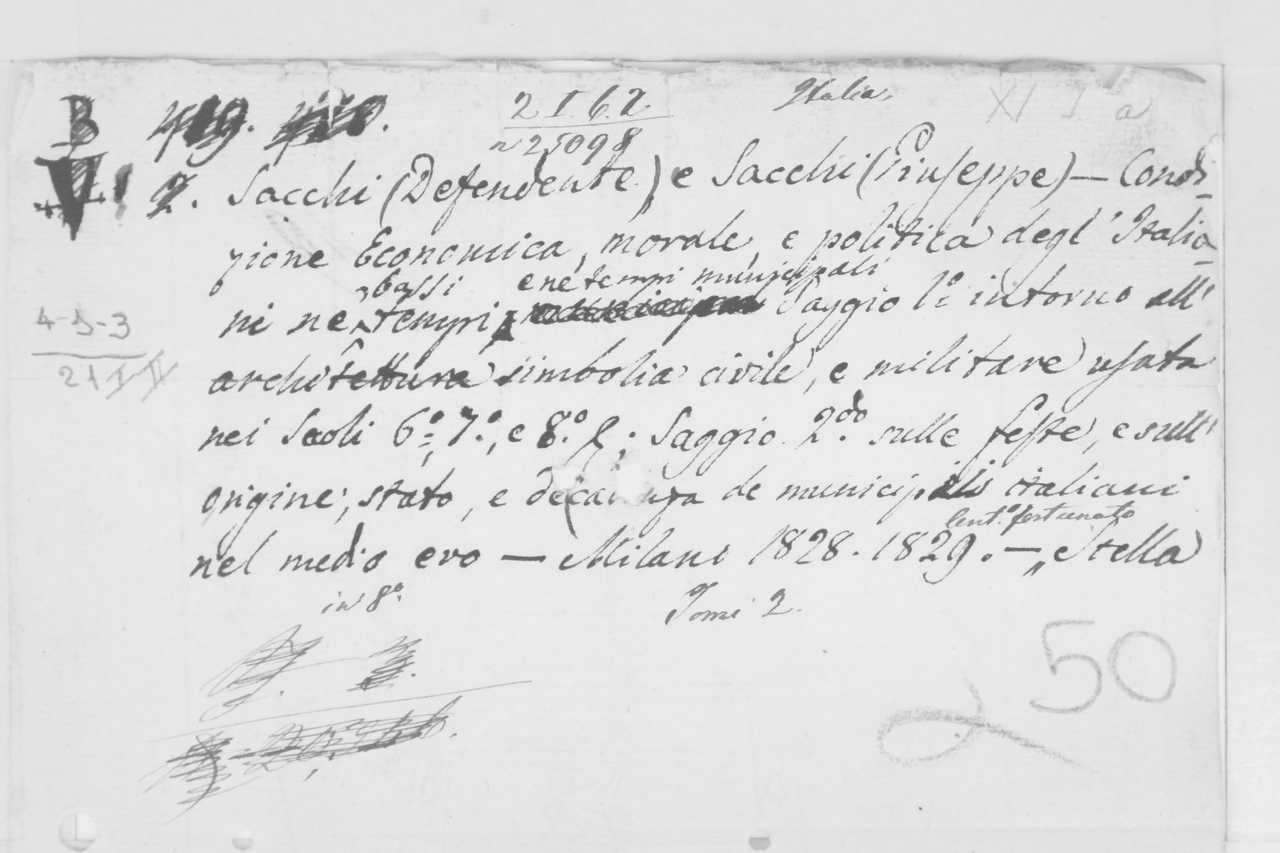 2 I. 6. 7.
Italia.
XI I a
B
V
n 25098
2. Sacchi (Defendente) e Sacchi (Giuseppe) — Condi-
zione Economica, morale, e politica degl' Italia-
bassi e ne tempi municipali
ni ne tempi Saggio 1.º intorno all'
architettura simbolia civile, e militare usata
nei Secoli 6.º, 7.º, e 8.º; Saggio 2.do sulle feste, e sull'
origine, stato, e decadenza de municipilis italiani
nel medio evo — Milano 1828. 1829. — „ Stella
fortunato
in 8.º
Tomi 2.
4-5-3
21 I II
50